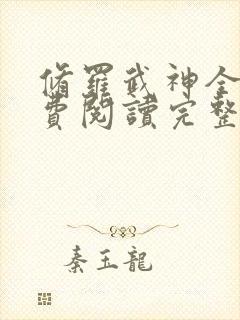 脩羅武神全
費閱讀完整
秦玉龍